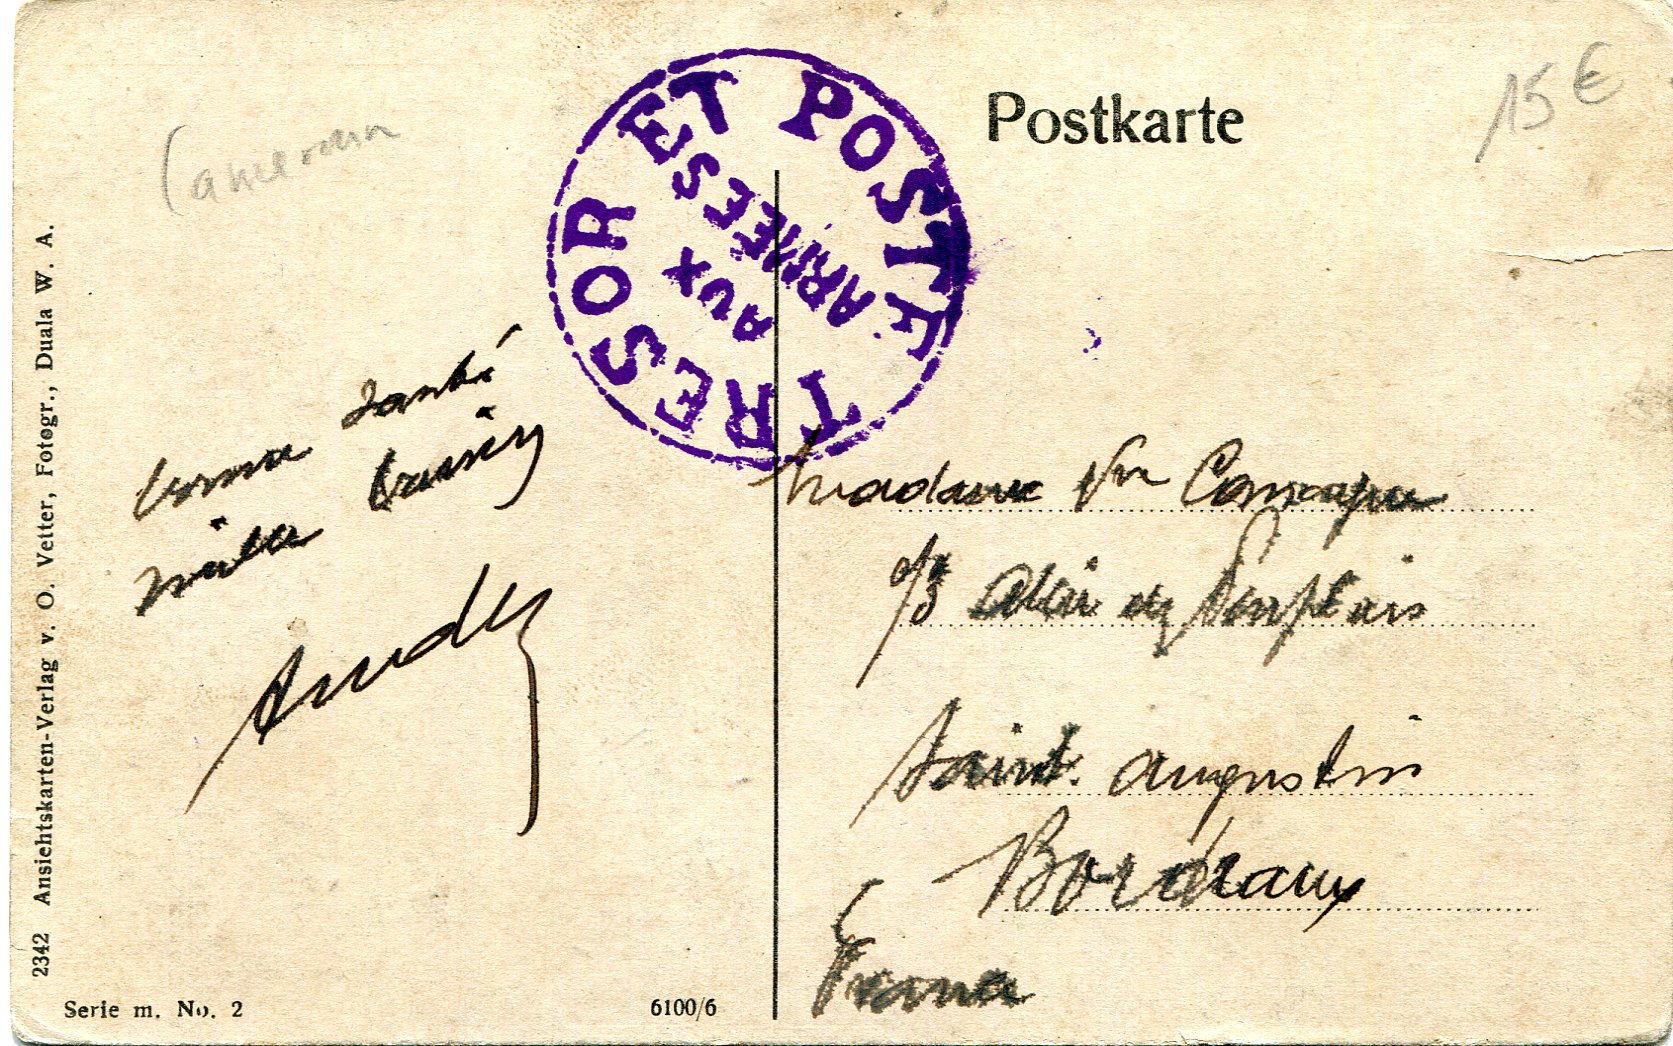 Postkarte
15 €
Cameroun
TRESOR ET POSTE
AUX
ARMEES
bonne santé
mille baisers
Madame Vve
Saint. Augustin
Bordeaux
France
2342 Ansichtskarten-Verlag v. O. Vetter, Fotogr., Duala W. A.
Serie m. No. 2
6100/6